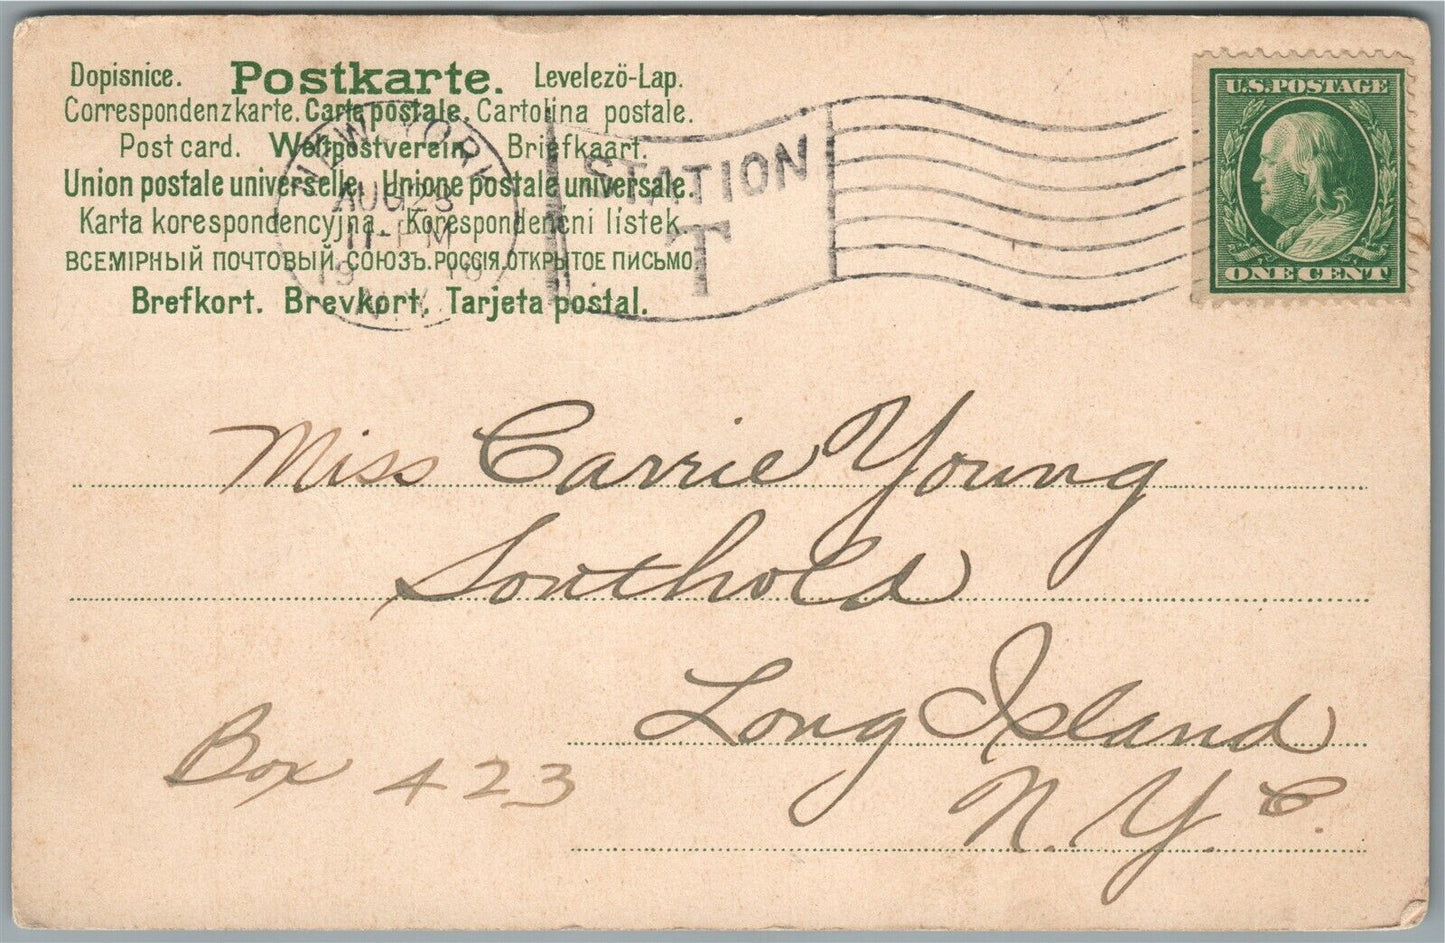 Dopisnice. Postkarte. Levelező-Lap.
Correspondenzkarte. Carte postale. Cartolina postale.
Post card. Weltpostverein. Briefkaart.
Union postale universelle. Unione postale universale.
Karta korespondencyjna. Korespondenčni lístek.
ВСЕМІРНЫЙ ПОЧТОВЫЙ СОЮЗЪ. РОССІЯ. ОТКРЫТОЕ ПИСЬМО.
Brefkort. Brevkort. Tarjeta postal.
NEW YORK
AUG 28
11-PM
19
N.Y.
STATION
T
U.S. POSTAGE
ONE CENT
Miss Carrie Young
Southold
Long Island
Box 423
N. Y. C.